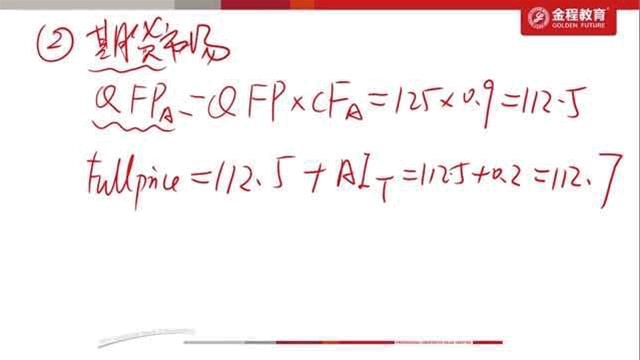 金程教育
GOLDEN FUTURE
② 期货市场
QFP_A = QFP × CF_A = 125 × 0.9 = 112.5
Full price = 112.5 + AI_T = 112.5 + 0.2 = 112.7